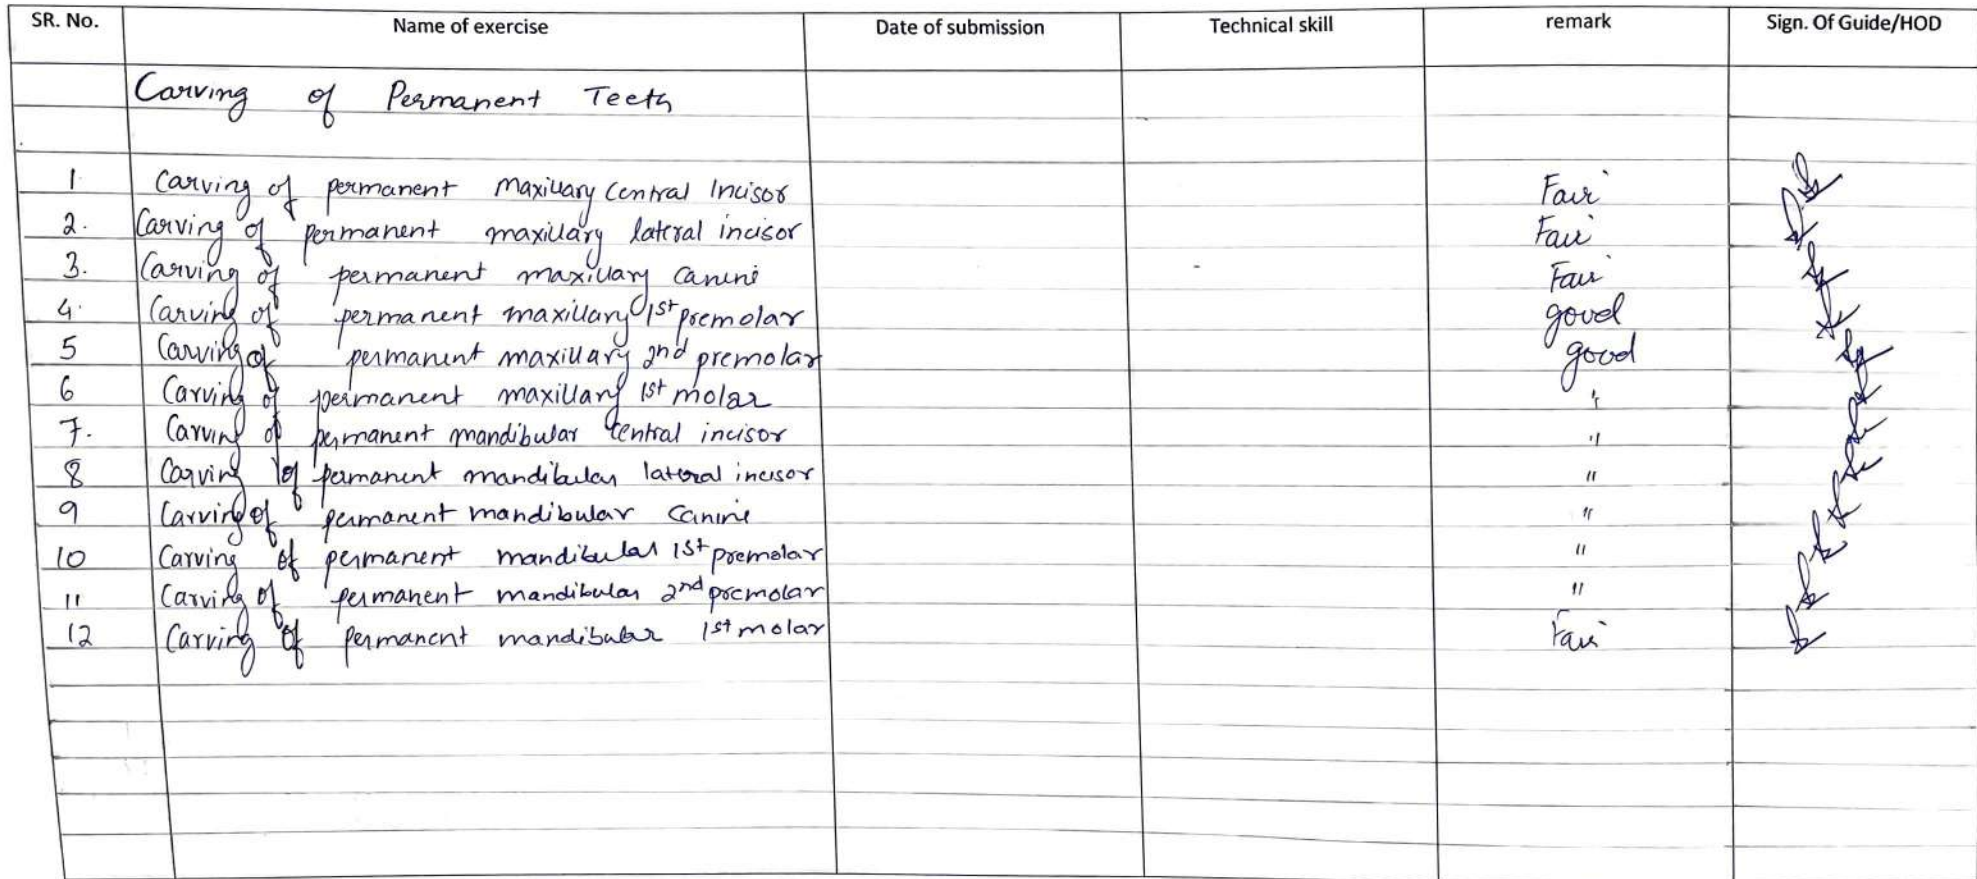 SR. No. Name of exercise Date of submission Technical skill remark Sign. Of Guide/HOD
Carving of Permanent Teeth
1 Carving of permanent maxillary Central Incisor Fair
2. Carving of permanent maxillary lateral incisor Fair
3. Carving of permanent maxillary canine Fair
4. Carving of permanent maxillary 1st premolar good
5 Carving of permanent maxillary 2nd premolar good
6 Carving of permanent maxillary 1st molar "
7. Carving of permanent mandibular central incisor "
8 Carving of permanent mandibular lateral incisor "
9 Carving of permanent mandibular canine "
10 Carving of permanent mandibular 1st premolar "
11 Carving of permanent mandibular 2nd premolar "
12 Carving of permanent mandibular 1st molar Fair